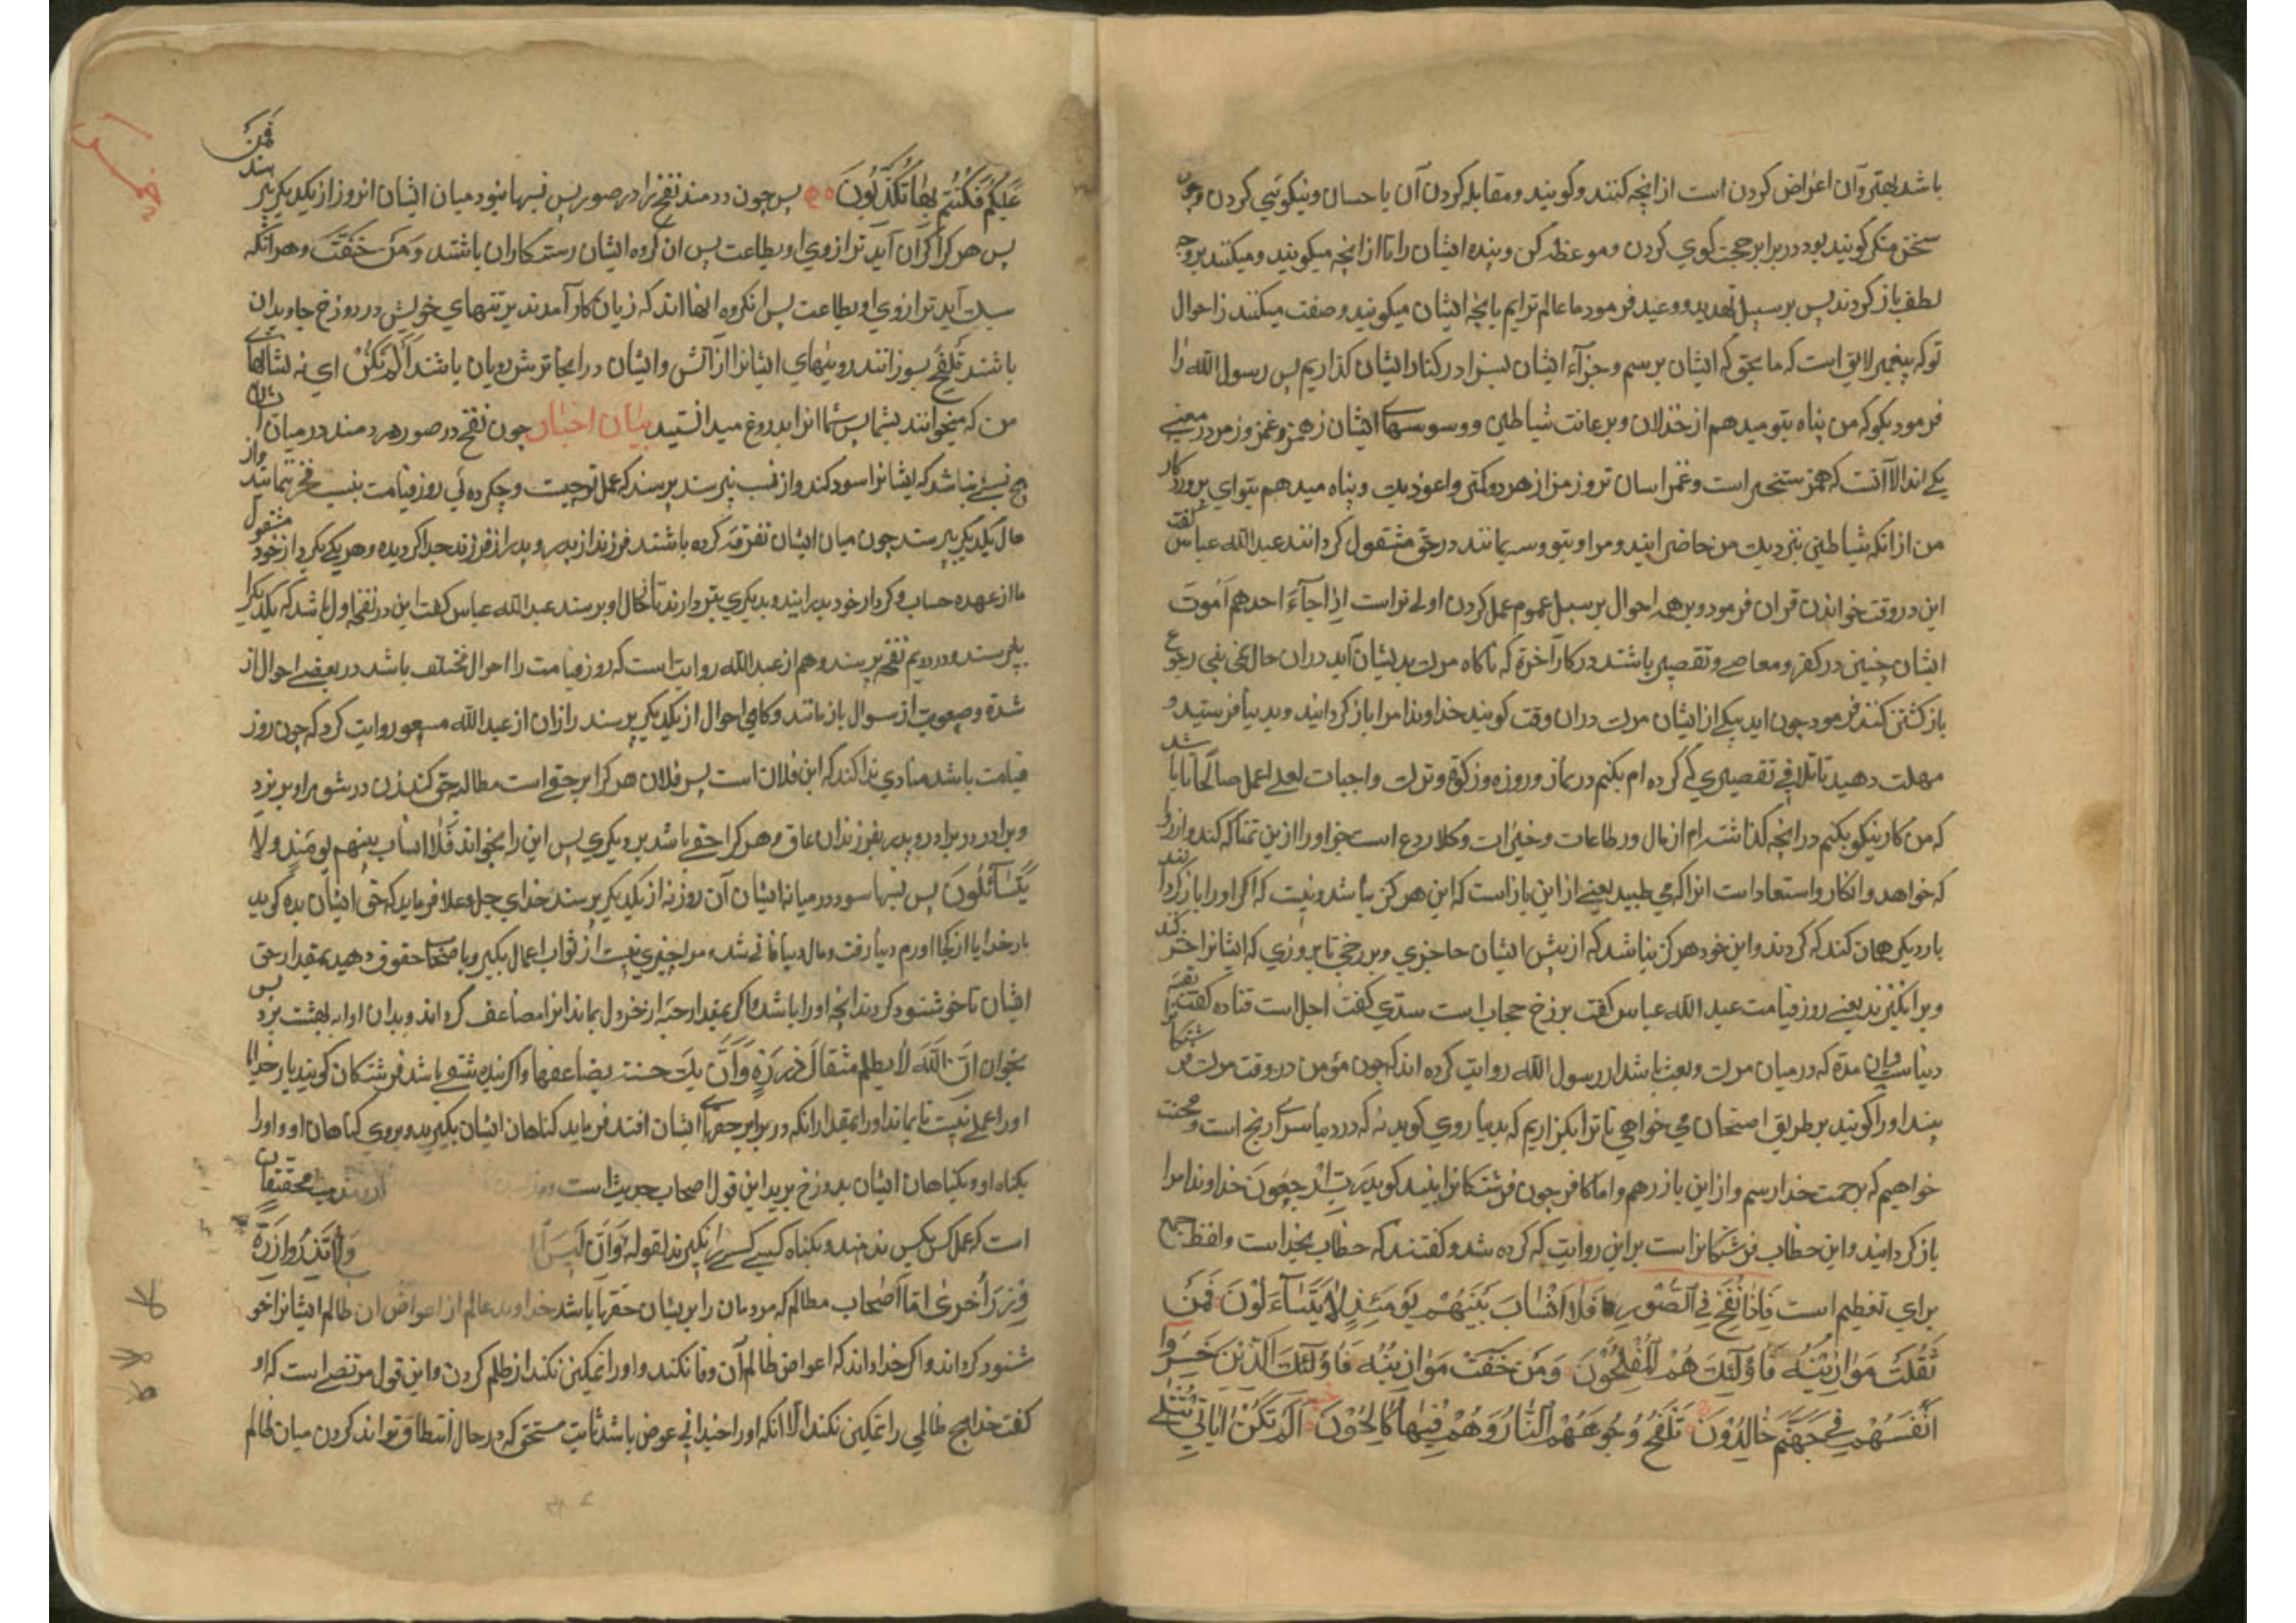 باشد بهتر وآن اعراض کردن است از انچه کنند وکویند ومقابله کردن آن باحسان ونیکویی کردن وچون
سخن منکر کویند بود در برابر حجت کوی کردن وموعظه کن وپنده ایشان را تا از انچه میکویند ومیکنند بروجه
لطف باز کردند پس بر سبیل تهدید ووعید فرمود ما عالم ترایم بانچه ایشان میکویند وصفت میکنند ز احوال
تو که پیغمبر لایق است که ما بحق که ایشان برسم وجزآء ایشان بسزا در کنار ایشان کذاریم پس رسول الله را
فرمود بکو که من پناه بتو میدهم از خذلان وبر عانت شیاطین ووسوسهای ایشان زهمز وغمز ورمز در معنی
یکی اند الا آنست که همز ستخیر است وغمز اسان تر ورمز از هر دو کمتر واعوذ بک وپناه میدهم بتو ای پروردکار
من از انکه شیاطین بنزدیک من حاضر ایند ومرا وبتو وسیمانند در حق مشغول کردانند عبدالله عباس کفت
این در وقت خواندن قران فرمود وبر همه احوال بر سبیل عموم عمل کردن اولی تر است اذا جآء احدهم الموت
ایشان چنین در کفر ومعاصی وتقصیر باشند در کار آخرة که ناکاه مرک بدیشان آید دران حال تمنی رجوع
باز کشتن کنند فرمود چون اید یکی از ایشان مرک دران وقت کویند خداوندا مرا باز کردانید وبدنیا فرستید و
مهلت دهید تا تلافی تقصیری که کرده ام بکنم در نماز وروزه وزکوة وترک واجبات لعلی اعمل صالحا تا باشد
که من کار نیکو بکنم در انچه کذاشته ام از مال ور طاعات وخیرات وکلا ردع است خواورا ازین تمنا که کند وارزو
که خواهد وانکار واستعاد است انرا که می طبید یعنی از این باز است که این هرکز نباشد ونیست که اکر اورا باز کردانند
بار دیکر همان کند که کردند واین خود هرکز نباشد که از پیش ایشان حاجزی وبرزخی تا بروزی که ایشانرا حشر کند
وبر انکیزند یعنی روز قیامت عبدالله عباس کفت برزخ حجاب است سدی کفت اجل است قتاده کفت بقیه
دنیاست مدة که در میان مرک وبعث باشد از رسول الله روایت کرده اند که چون مؤمن در وقت مرک فرشتکانرا
بیند اورا کویند بر طریق امتحان می خواهی تا ترا بکزاریم که بدنیا روی کوید نه که در دنیا سرای رنج است ومحنت
خواهیم که برحمت خدا رسم واز این باز رهم واما کافر چون فرشتکانرا ببیند کوید رب ارجعون خداوندا مرا
باز کردانید واین خطاب فرشتکانراست بر این روایت که کرده شد وکفتند که خطاب بخداست ولفظ جمع
برای تعظیم است فَاِذَا نُفِخَ فِی الصُّورِ فَلَا اَنْسَابَ بَیْنَهُمْ یَوْمَئِذٍ وَلَا یَتَسَآءَلُونَ فَمَنْ
ثَقُلَتْ مَوَازِینُهُ فَاُولٰٓئِكَ هُمُ الْمُفْلِحُونَ وَمَنْ خَفَّتْ مَوَازِینُهُ فَاُولٰٓئِكَ الَّذِینَ خَسِرُوا
اَنْفُسَهُمْ فِی جَهَنَّمَ خَالِدُونَ تَلْفَحُ وُجُوهَهُمُ النَّارُ وَهُمْ فِیهَا كَالِحُونَ اَلَمْ تَكُنْ اٰیَاتِی تُتْلٰی
عَلَیْكُمْ فَكُنْتُمْ بِهَا تُكَذِّبُونَ پس چون در دمند نفخ را در صور پس نسبها نبود میان ایشان انروز از یکدیکر نپرسند فمن
پس هر کرا کران آید ترازوی او بطاعت پس ان کروه ایشان رستکاران باشند وَمَنْ خَفَّتْ وهر آنکه
سبک آید ترازوی او بطاعت پس انکروه انها اند که زیان کار آمدند بر تنهای خویش در دوزخ جاویدان
باشند تَلْفَحُ بسوزانند رویهای ایشانرا از آتش وایشان در انجا ترش رویان باشند اَلَمْ تَكُنْ ای نه نشانهای
من که میخوانند بشما پس شما انرا بدروغ میدانستید بیان اخبار چون نفخ در صور دمند در میان ایشان
هیچ نسبی نباشد که ایشانرا سود کند واز نسب نپرسند بپرسند که عمل تو چیست وچکرده ئی روز قیامت بنسب فخر ننمایند واز
حال یکدیکر نپرسند چون میان ایشان تفرقه کرده باشند فرزند از پدر وپدر از فرزند جدا کردیده وهر یکی بکردار خود مشغول
تا از عهده حساب وکردار خود بدر ایند وبدیکری نپردازند تا حال او پرسند عبدالله عباس کفت این در نفخه اول باشد که یکدیکر را
نپرسند ودر دویم نفخه پرسند وهم از عبدالله روایت است که روز قیامت را احوال مختلف باشد در بعضی احوال از
شدة وصعوبت از سوال باز مانند وکاهی احوال از یکدیکر پرسند زاذان از عبدالله مسعود روایت کرد که چون روز
قیامت باشد منادی ندا کند که این فلان است پس فلان هر کرا بر حقی است مطالبه حق کند زن در شوهر اویزد
وبرادر در برادر وپدر بفرزندان عاق وهر کرا حقی باشد بر دیکری پس این را بخواند فَلَا انساب بینهم یومئذ ولا
یَتَسَآئَلُونَ پس نسبها سود در میانه ایشان آن روز نه از یکدیکر پرسند خدای جل وعلا فرماید که حق ایشان بده کوید
بار خدایا از کجا اورم دنیا رفت ومال دنیا فانی شد، مرا چیزی نیست از ثواب اعمال بکیر وباصحاب حقوق دهید بمقدار حق
ایشان تا خوشنود کردند انچه اورا باشد واکر بمقدار حبه از خردل بماند انرا مضاعف کرداند وبدان اورا به بهشت برد پس
بخوان اِنَّ اللّٰهَ لَا یظلم مثقال ذَرَّةٍ وَاِنْ تك حسنة یضاعفها واکر بنده شقی باشد فرشتکان کویند بار خدایا
اورا عملی نیست تا بماند اورا بمقدار انکه در برابر حقهای ایشان افتد فرماید کناهان ایشان بکیرید وبروی کناهان او واورا
بکناه او وبکناهان ایشان بدوزخ برید این قول اصحاب حدیث است محققان
است که عمل کس بکس ندهند وبکناه کسی کسی را نکیرند لقوله وَاَنْ لَیْسَ وَلَا تَزِرُ وَازِرَةٌ
وِزْرَ اُخْرٰی امّا اصحاب مظالم که مردمان را بریشان حقها باشد خداوند عالم از اعواض ان ظالم ایشانرا خو
شنود کرداند واکر خدا داند که اعواض ظالم آن وفا نکند واورا تمکین نکند از ظلم کردن واین قول مرتضی است که او
کفت خدا هیچ ظالمی را تمکین نکند الا انکه اورا چندانی عوض باشد ثابت مستحق که در حال انتطاق تواند کردن میان ظالم